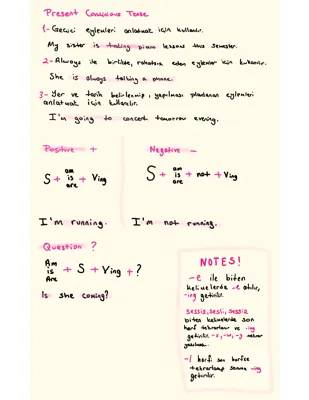 Present Continuous Tense
1- Geçici eylemleri anlatmak için kullanılır.
My sister is taking piano lessons this semester.
2- Always ile birlikte, rahatsız eden eylemler için kullanılır.
She is always talking a phone.
3- Yer ve tarih belirlenmiş, yapılması planlanan eylemleri
anlatmak için kullanılır.
I'm going to concert tomorrow evening.
Positive +
S + am is are + Ving
I'm running.
Negative -
S + am is are + not + Ving
I'm not running.
Question ?
Am Is Are + S + Ving + ?
Is she coming?
NOTES!
-e ile biten
kelimelerde -e atılır,
-ing getirilir.
sessiz, sesli, sessiz
biten kelimelerde son
harf tekrarlanır ve -ing
getirilir. -x, -w, -y tekrar
-l harfi son harfse
tekrarlanıp sonuna -ing
getirilir.